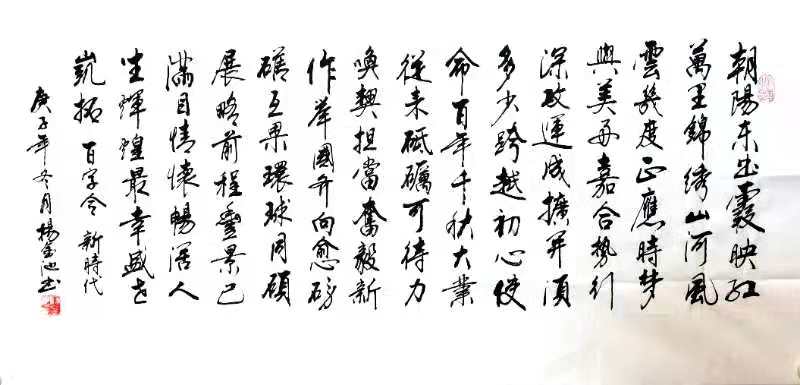 朝陽东出霞映红
萬里錦绣山河風
雲幾度正應時梦
與美再嘉合势行
深改運成擴开
多少跨越初心使
命百年千秋大業
從来砥礪可待力
喚興担當奮毅新
作举國向愈磅
礴互果環球同碩
展略前程豐景已
满目情懷暢活人
生輝煌最幸盛世
凱拓 百字令 新時代
庚子年冬月楊金池书